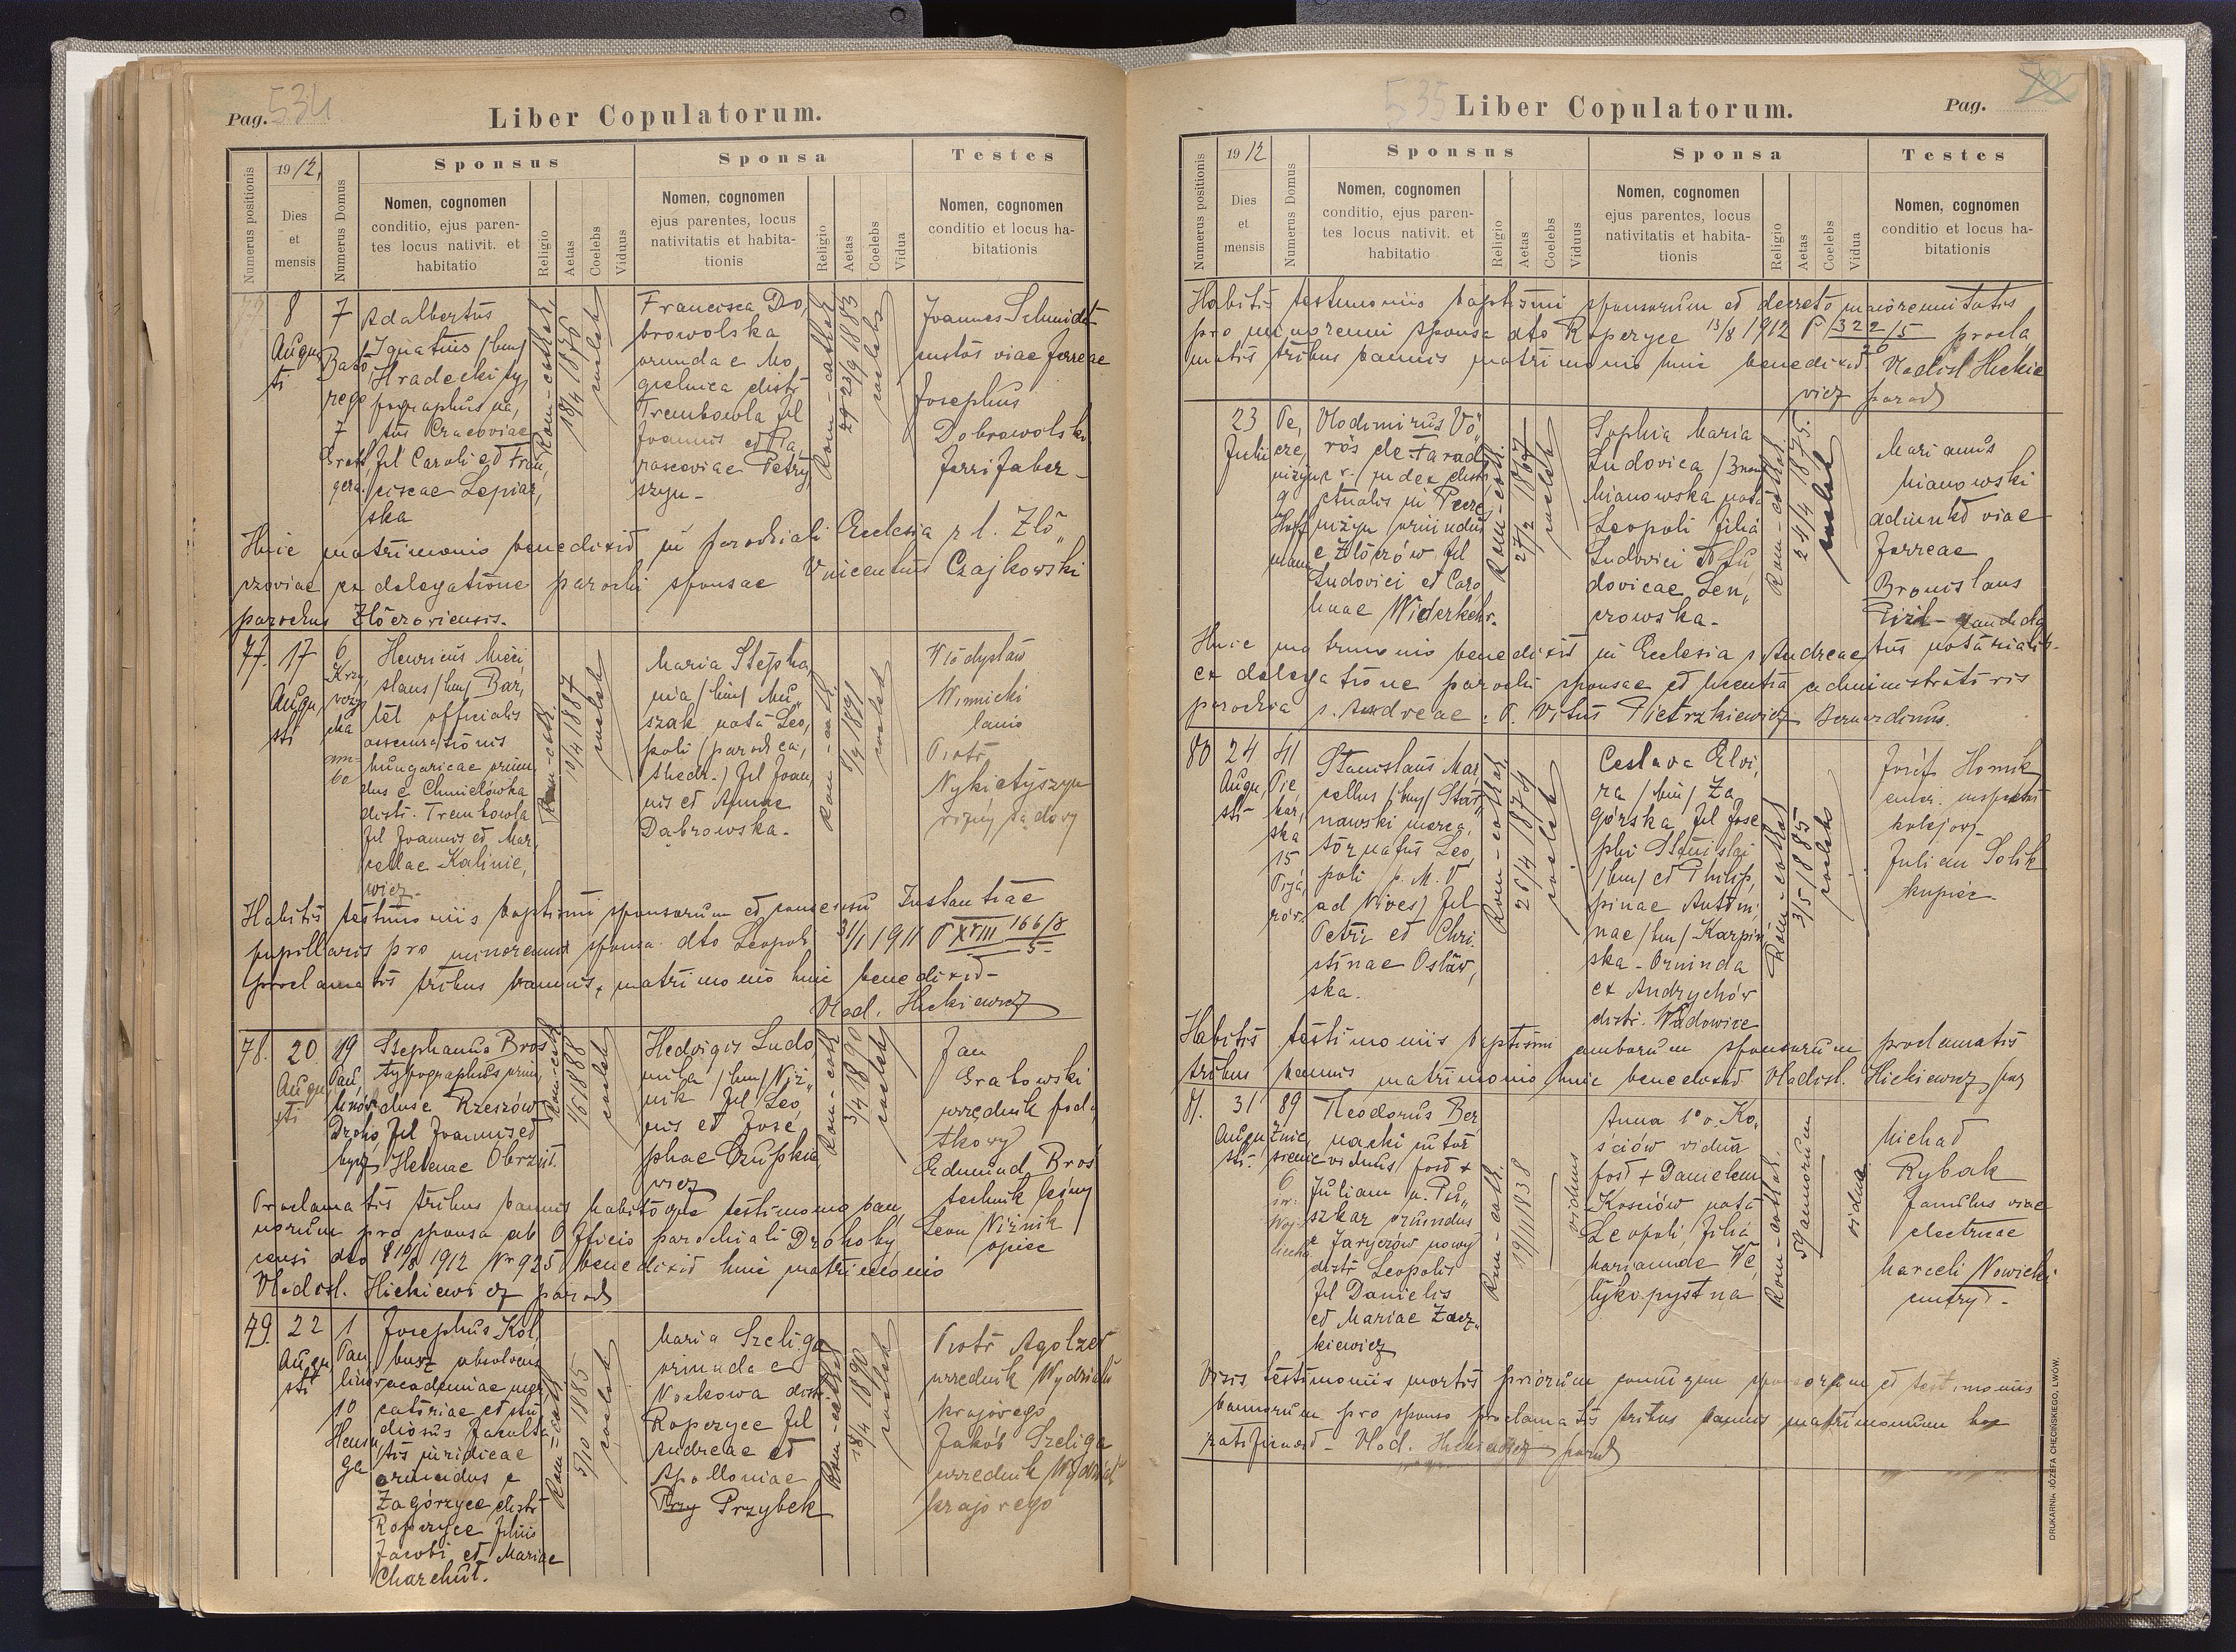 Pag. 534
Liber Copulatorum.
Numerus positionis
1912,
Dies
et
mensis
Numerus Domus
Sponsus
Nomen, cognomen
conditio, ejus paren-
tes locus nativit. et
habitatio
Religio
Aetas
Coelebs
Viduus
Sponsa
Nomen, cognomen
ejus parentes, locus
nativitatis et habita-
tionis
Religio
Aetas
Coelebs
Vidua
Testes
Nomen, cognomen
conditio et locus ha-
bitationis
8
Augu
sti
7
Bato
rego
7
Adalbertus
Ignatius /bin/
Hradecki ty,
pographus na,
tus Cracoviae
fil Caroli et Fran,
ciscae Lepiar,
ska
Rom-cathol.
18/4 1875
coelebs
Francisca Do,
browolska
orunda e Mo
gielnica distr
Trembowla fil
Joannis et Pa,
rascoviae Petry
szyn-
Rom-cathol.
29/9 1883
coelebs
Joannes Schmidt
custos viae ferreae
Josephus
Dobrowolski
ferri faber-
Huic matrimonio benedixit in parochiali Ecclesia r. l. Zło„
czoviae ex delegatione parochi sponsae Vincentius Czajkowski
parochus Złoczoviensis.
77. 17
Augu,
sti
6
Henricus Mieci,
slaus /bin/ Bar,
tel officialis
assecurationis
hungaricae oriun
dus e Chmielówka
distr. Trembowla
fil Joannis et Mar
cellae Kalinie,
wicz-
Rom-cath.
10/4 1887
coelebs
Maria Stepha,
nia /bin/ Mu„
szak nata Leo,
poli /paroch ca,
thedr./ fil Joan,
nis et Annae
Dąbrowska-
Rom-cath.
1891
coelebs
Władysław
Winnicki
lanio
Piotr
Nykietyszyn
woźny sądowy
Habitis testimoniis baptismi sponsorum et consensu Instantiae
pupillaris pro minorenni sponsa dto Leopoli 31/1 1911 P XVIII 166/8
5
proclamatis tribus bannis, matrimonio huic benedixit-
Vlad. Hickiewicz
78. 20
Augu
sti
19
Pau,
linów
Droho
bycz
Stephanus Bros
typographus oriun,
dus e Rzeszów
fil Joannis et
Helenae Obrzut.
Rom-cath
1888
coelebs
Hedvigis Ludo
mila /bin/ Niż„
nik fil Leo
nis et Jose
phae Czupkie
wicz
Rom-cath
1890
coelebs
Jan
Grabowski
urzędnik poda
tkowy
Edmund Bros
technik leśny
Leon Niżnik
opiec
Proclamatis tribus bannis habitoque testimonio ban,
norum pro sponsa ab Officio parochiali Drohoby,
censi dto 18/8 1912 Nr 925 benedixit huic matrimonio
Vladisl. Hickiewicz paroch
79. 22
Augu
sti
1
Pau
linów
10
Josephus Kol,
busz absolvens
academiae mer
caturiae et stu
diosus faculta
tis juridicae
oriundus e
Zagórzyce distr
Ropczyce filius
Jacobi et Mariae
Charchut.
Rom-cath
5/10 1885
coelebs
Maria Szeliga
oriunda e
Nockowa distr
Ropczyce fil
Andreae et
Apolloniae
Przy Przybek
Rom-cathol
18/4 1890
coelebs
Piotr
urzędnik Wydziału
krajowego
Jakób Szeliga
urzędnik Wydział
krajowego
535
Liber Copulatorum.
Pag.
Numerus positionis
1912
Dies
et
mensis
Numerus Domus
Sponsus
Nomen, cognomen
conditio, ejus paren-
tes locus nativit. et
habitatio
Religio
Aetas
Coelebs
Viduus
Sponsa
Nomen, cognomen
ejus parentes, locus
nativitatis et habita-
tionis
Religio
Aetas
Coelebs
Vidua
Testes
Nomen, cognomen
conditio et locus ha-
bitationis
Habitis testimoniis baptismi sponsorum et decreto maiorennitatis
pro minorenni sponsa dto Ropczyce 13/8 1912 P 322/5 procla,
matis tribus bannis matrimonio huic benedixit Vladisl Hickie
wicz paroch
23
Julii
Pe,
cze,
niżyn
9
Hoff
mana
Vlodimirus Vö„
rös de Farad
r. / judex distr
ctualis in Pecze
niżyn oriundus
e Złoczów fil
Ludovici et Caro
linae Widerkehr.
Rom-cath.
27/2 1867
coelebs
Sophia Maria
Ludovica
Mianowska nata
Leopoli filia
Ludovici et Lu
dovicae Len„
czowska-
Rom-cathol
24/4 1875.
coelebs
Marianus
Mianowski
adiunkt viae
ferreae
Bronislaus
Pizil- candida
tus notarialis-
Huic matrimonio benedixit in Ecclesia s Andreae
ex delegatione parochi sponsae et licentia administratoris
parochia s. Andreae. P. Vitus Pietrzkiewicz Bernardinus.
80 24
Augu,
sti
41
Pie,
kar,
ska
15
Pija
rów
Stanislaus Mar
cellus /bin/ Star
nawski merca,
tor natus Leo
poli p. M. V
ad Nives) fil
Petri et Chri
stinae Ostaw,
ska.
Rom-cathol.
26/4 1874
coelebs
Ceslava Elvi,
ra /bin/ Za
górska fil Jose
phi Stanislai
/bin/ et Philip,
pinae Antoni
nae /bin/ Karpiń
ska-Oriunda
ex Andrychów
distr. Wadowice
Rom-cathol
3/5 1885
coelebs
Józef Hornik
emer. inspektor
kolejowy-
Julian Solik
kupiec-
Habitis testimoniis baptismi amborum sponsorum proclamatis
tribus bannis matrimonio huic benedixit Vladisl. Hickiewicz par
81. 31
Augu
sti.
89
Znie,
sienie
6
św.
Woj
ciecha
Theodorus Ber
nacki
viduus post +
Juliam n. Pu„
szkar oriundus
e Jaryczów nowy
distr Leopolis
fil Danielis
et Mariae Zacz„
kiewicz
Rom-cath.
19/11 1838
viduus
Anna 1° v. Ko,
sciów vidua
post + Danielem
Kosciów nata
Leopoli filia
Mariannae We
lykopystna
Rom-cathol.
59 annorum
vidua
Michał
Rybak
famulus viae
electricae
Marceli Nowicki
emeryt-
Visis testimoniis mortis priorum coniugum sponsorum et testimoniis
bannorum pro sponso proclamatis tribus bannis matrimonium hoc
ratificavit- Vlad. Hickiewicz paroch
DRUKARNIA JÓZEFA CHĘCIŃSKIEGO, LWÓW.